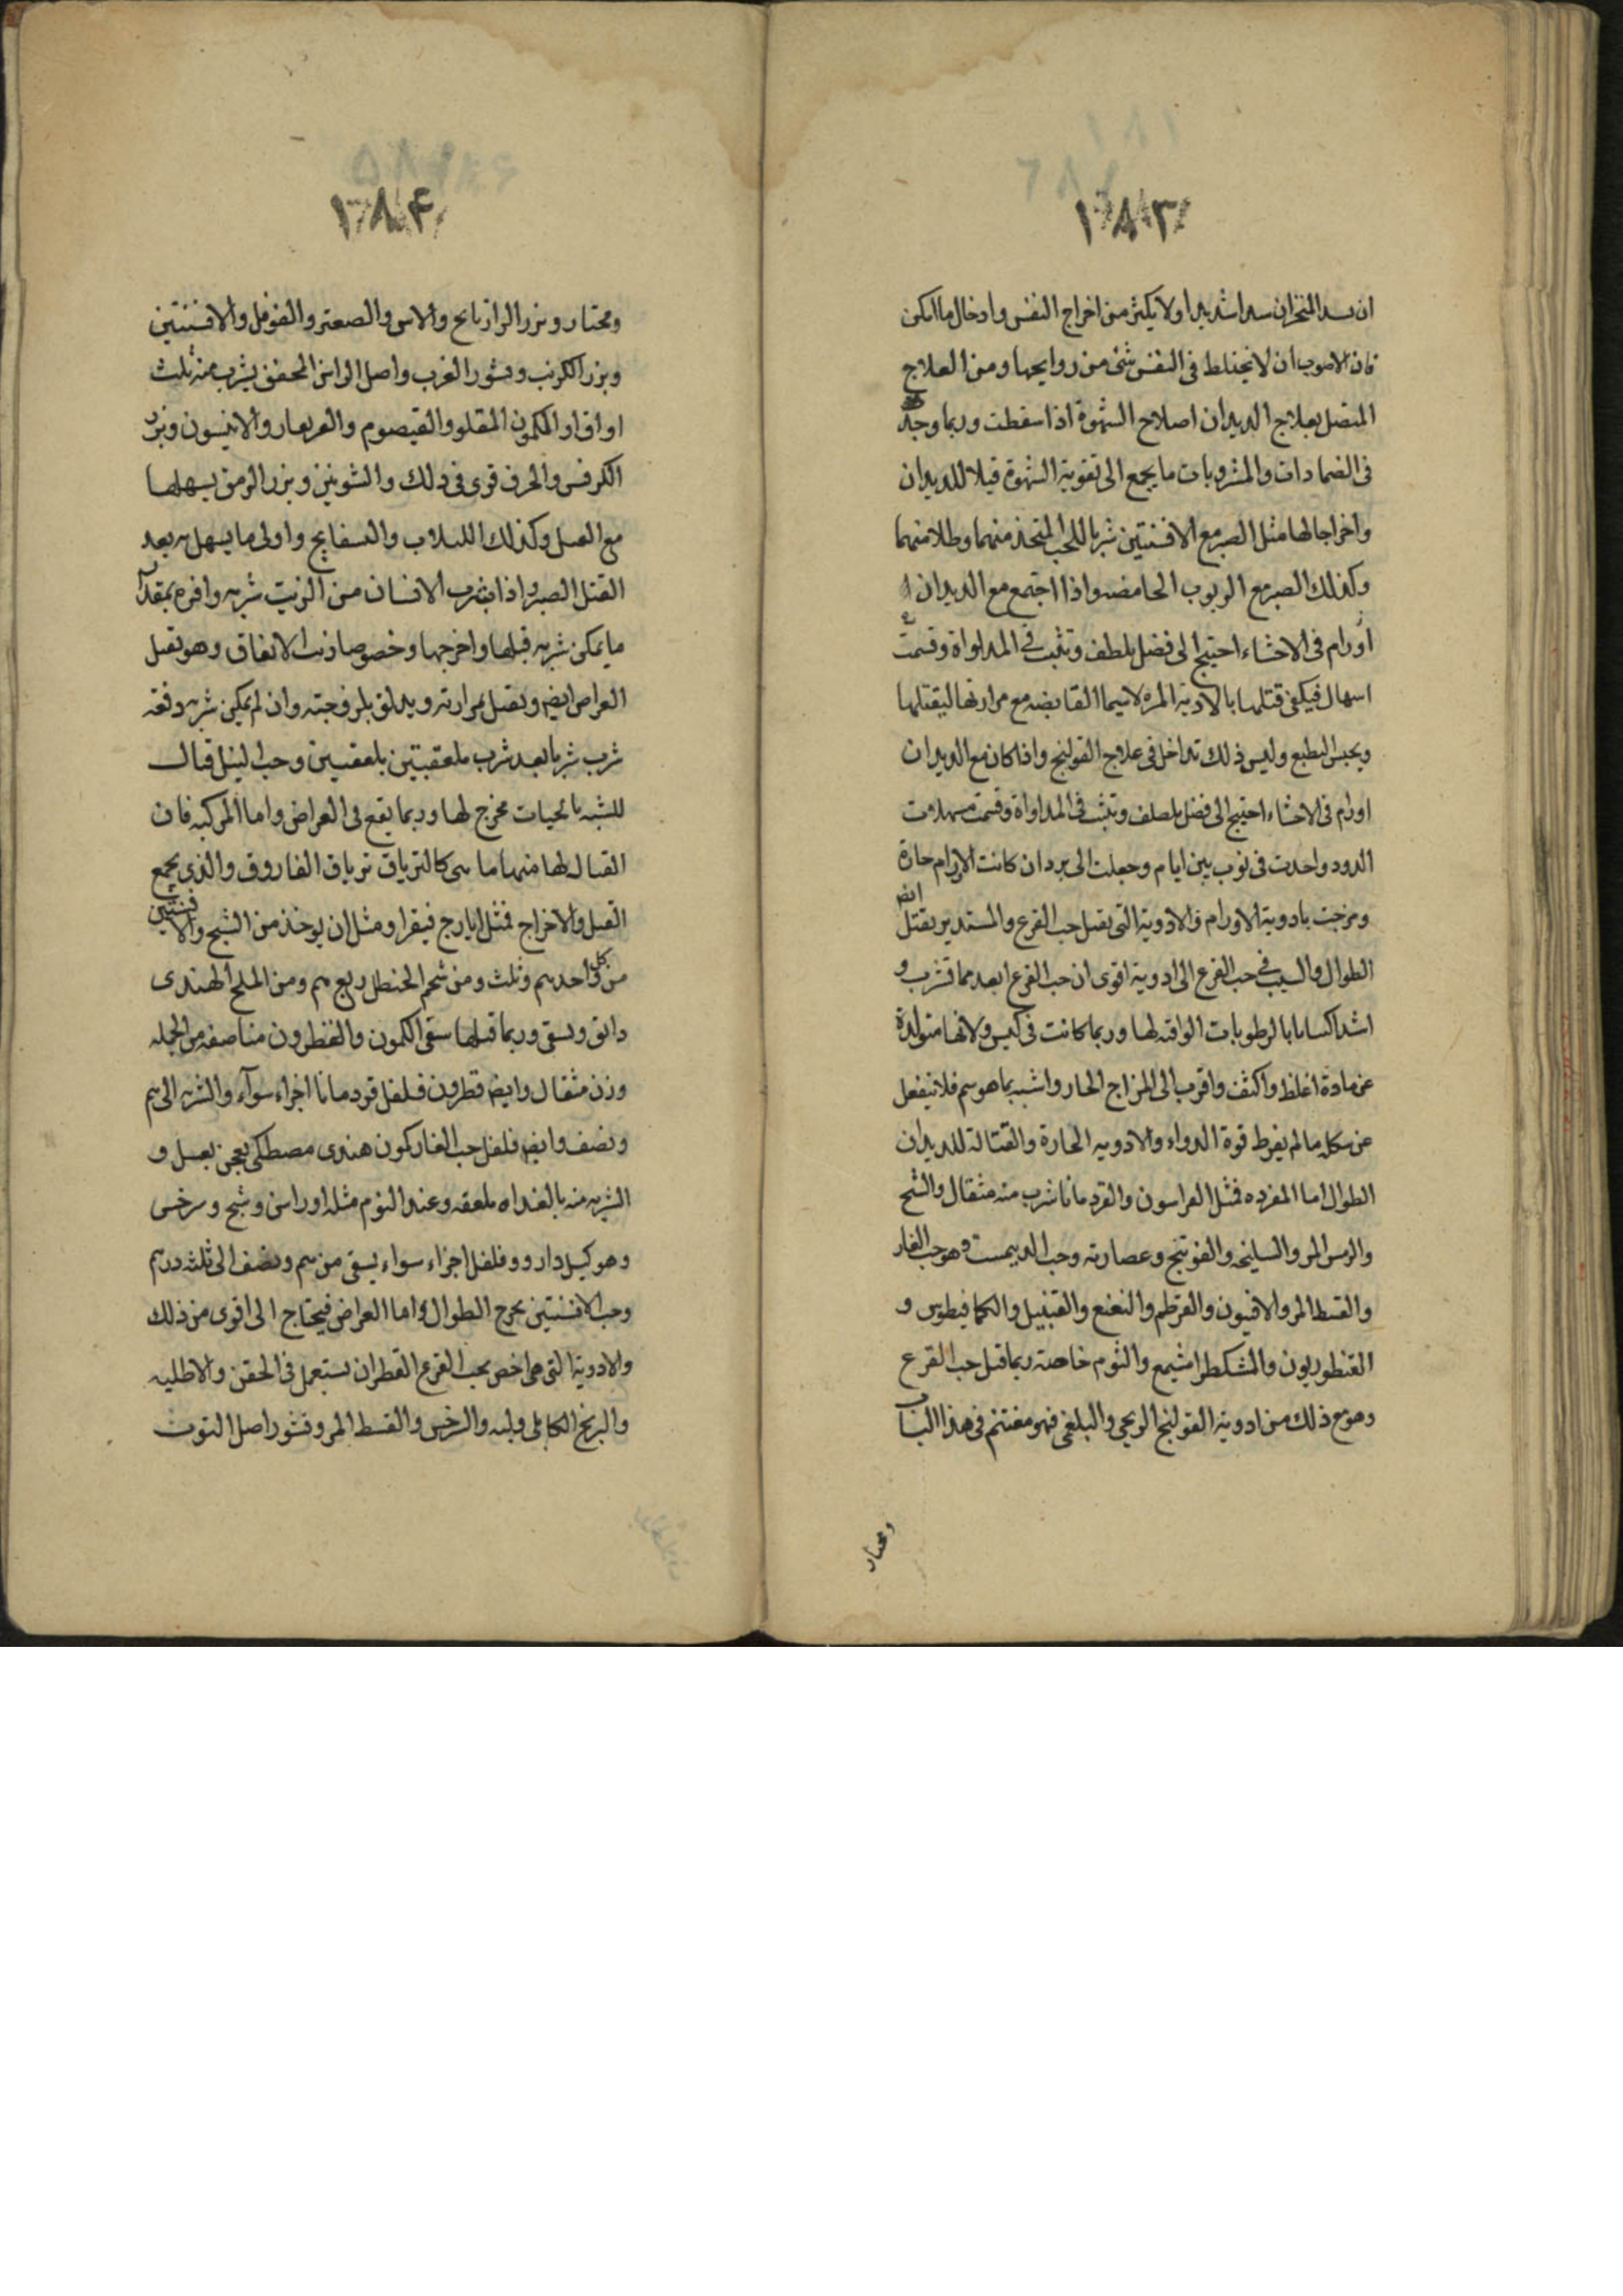 ١٨٣
ان يسد المنخران سدا شديدا ولا يكثر من اخراج النفس وادخال ما امكن
فان الاصوب ان لا يختلط فى النفس شئ من روايحها ومن العلاج
المتصل بعلاج الديدان اصلاح الشهوة اذا سقطت وربما وجد
فى الضمادات والمشروبات ما يجمع الى تقوية الشهوة قتلا للديدان
واخراجا لها مثل الصبر مع الافسنتين شربا للحب المتخذ منهما وطلا منهما
وكذلك الصبر مع الربوب الحامضه واذا اجتمع مع الديدان
اورام فى الاحشاء احتيج الى فضل تلطف وتثبت فى المداواة وقسمت
اسهال فيكفى قتلها بالادوية المره لاسيما القابضه مع مرارتها ليقتلها
ويحبس البطيع وليس ذلك تداخل فى علاج القولنج واذا كان مع الديدان
اورام فى الاحشاء احتيج الى فضل تلطف وتثبت فى المداواة وقسمت مسهلات
الدود واحدت فى نوب بين ايام وجعلت الى برد ان كانت الاورام حارة
ومزجت بادوية الاورام والادوية التى تقتل حب القرع والمستدير تقتل ايضا
الطوال والسبب فى حب القرع الى ادوية اقوى ان حب القرع ابعد مما تشرب و
اشد اكتسابا بالرطوبات الواقيه لها وربما كانت فى كيس ولانها متولدة
عن مادة اغلظ واكثف واقرب الى المزاج الحار واشبه بما هو سم فلا تنفعل
عن كله ما لم يفرط قوة الدواء والادويه الحارة والقتالة للديدان
الطوال اما المفرده فمثل الفراسون والقردمانا شرب منه مثقال والشح
والترمس المر والسليخه والفوتنج وعصارته وحب الدهمست وهو حب الغار
والقسط المر والافيون والقرطم والنعنع والقنبيل والكمافيطوس و
القنطوريون والمشكطرامشيع والثوم خاصة ربما قتل حب القرع
وهو مع ذلك من ادوية القولنج الريحى والبلغمى فهو مغتنم فى هذا الباب
ومختار
١٨٤
ومختار وبزر الرازيانج والاس والصعتر والفوفل والافسنتين
وبزر الكرنب وقشور الغرب واصل الراسن المجفف يشرب منه ثلث
اواق او الكمون المقلو والقيصوم والانيسون وبزر
الكرفس والحرف قوى فى ذلك والشونيز وبزر الرمق يسهلها
مع العسل وكذلك اللبلاب والبسفايج واولى ما يسهل به بعد
القتل الصبر واذا شرب الانسان من الزيت شربه وافره بمقدار
ما يمكن شربه قتلها واخرجها وخصوصا زيت الانفاق وهو تقتل
العراض ايضا ويقتل بمرارته ويدلق بلزوجته وان لم يمكن شربه دفعه
شرب شربا بعد شرب ملعقتين ملعقتين وحب النيل قتال
للشبه بالحيات مخرج لها وربما يقع فى العراض واما المركبه فان
القتاله لها منها ما هى كالترياق ترياق الفاروق والذى يجمع
القتل والاخراج فمثل ايارج فيقرا ومثل ان يوخذ من الشيح والافسنتين
من كل واحد درهم وثلث ومن شحم الحنظل ربع درهم ومن الملح الهندى
دانق ويسقى وربما قتلها سقى الكمون والنطرون مناصفه من الجمله
وزن مثقال وايضا قطرون فلفل قردمانا اجزاء سواء والشربه الى درهم
ونصف وايضا فلفل حب الغار كمون هندى مصطكى يعجن بعسل و
الشربه منه بالغداة ملعقه وعند النوم مثلها وراسن وشيح وسرخس
وهو كيل دارو وفلفل اجزاء سواء يسقى من درهم ونصف الى ثلثه درهم
وحب الافسنتين يخرج الطوال واما العراض فيحتاج الى اقوى من ذلك
والادوية التى هى اخص بحب القرع القطران يستعمل فى الحقن والاطليه
والبرنج الكابلى ولبه والسرخس والقسط المر وقشور اصل التوث